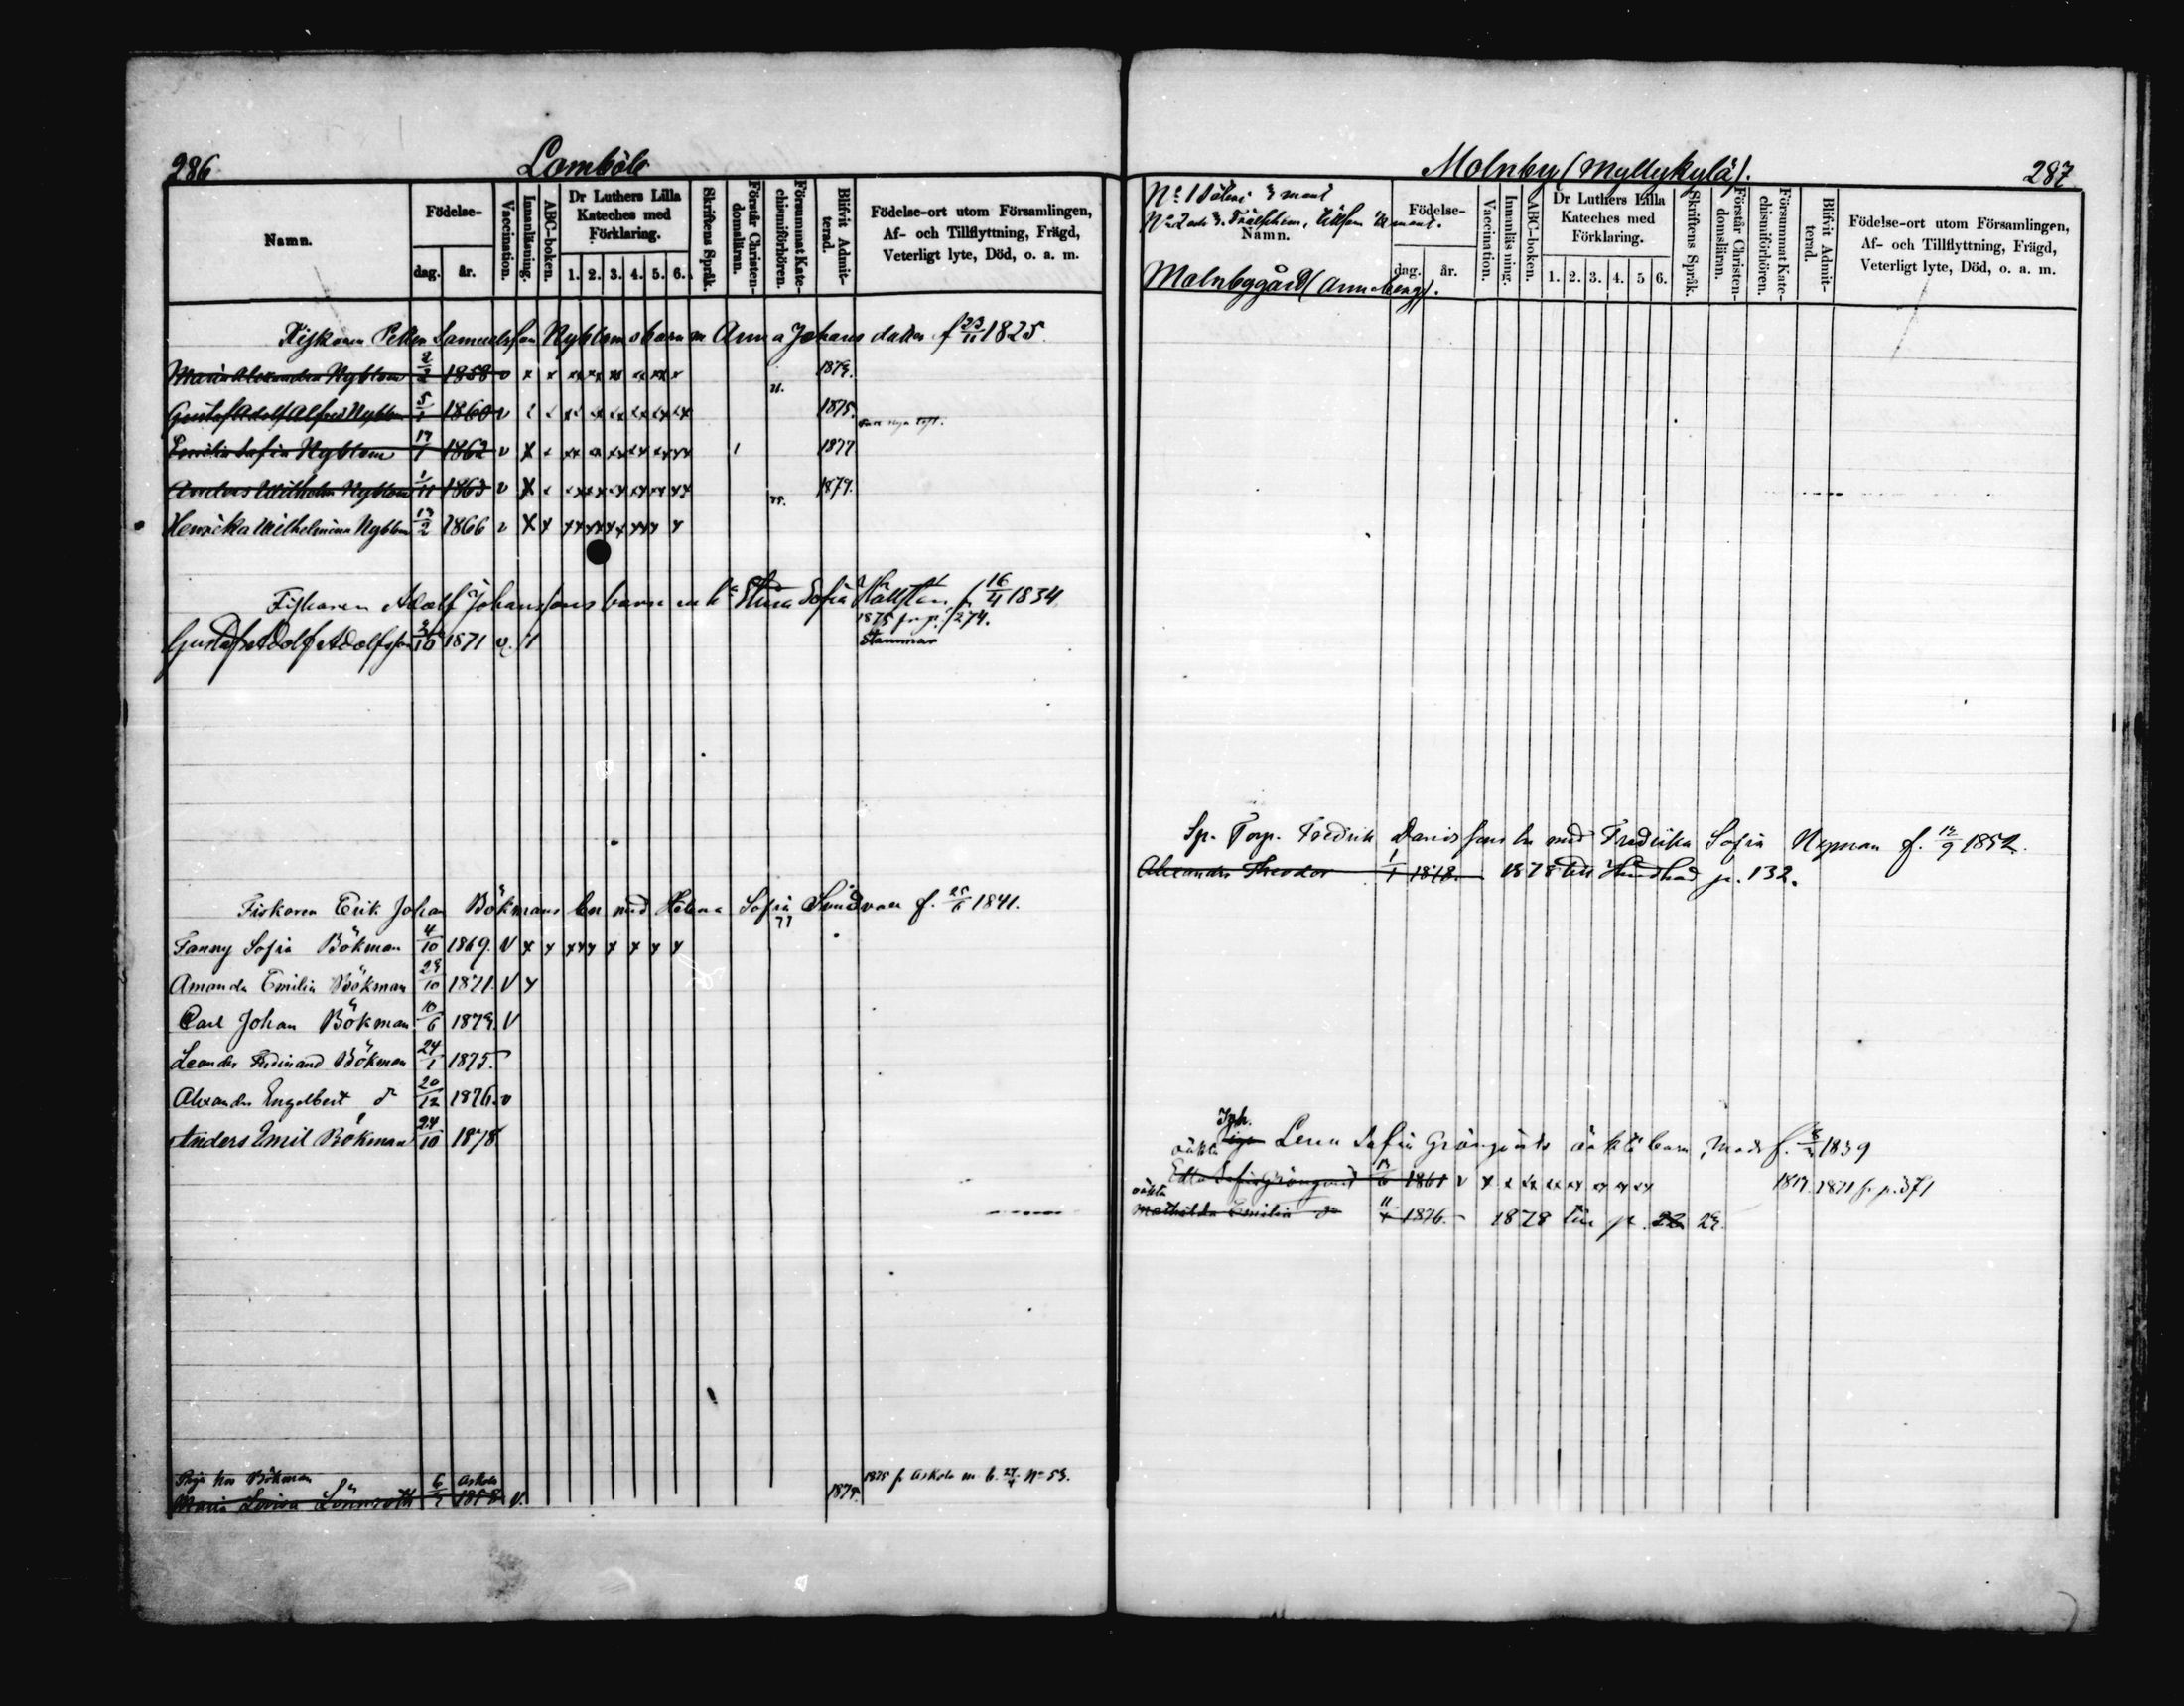 286 Lomböle
Namn. Födelse- dag. år. Vaccination. Innanläsning. ABC-boken. Dr Luthers Lilla Kateches med Förklaring. 1. 2. 3. 4. 5. 6. Skriftens Språk. Förstår Christendomsläran. Försummat Katechismiförhören. Blifvit Admitterad. Födelse-ort utom Församlingen, Af- och Tillflyttning, Frägd, Veterligt lyte, Död, o. a. m.
Fiskaren Petter Samuelsson Nybloms barn m Anna Johans dotter f 23/11 1825.
Maria Alexandra Nyblom 2/2 1858 v x x xx xx xx xx xx x
Gustaf Adolf Alfred Nyblom 1860 v 1875.
Emilia Sofia Nyblom 17/1 1862 v x 1 1877
Anders Wilhelm Nyblom 1/11 1863 v x 1879.
Henrika Wilhelmina Nyblom 13/2 1866 v x x
Fiskaren Adolf Johanssons barn m h: Stina Sofia Hällsten f 16/4 1834
1875 fr p. 274.
Gustaf Adolf Adolfsson 3/10 1871 v. 1 Stammar
Fiskaren Erik Johan Bökmans bn med Helena Sofia Sundman f. 25/6 1841.
77
Fanny Sofia Bökman 4/10 1869. V x x xxx x x x x
Amanda Emilia Bökman 29/10 1871. V x
Carl Johan Bökman 10/6 1873. V
Leander Ferdinand Bökman 24/1 1875.
Alexander Engelbert d:o 20/12 1876. v
Anders Emil Bökman 24/10 1878
Piga hos Bökman Askola 1875 fr Askola m. b. 27/4 No 53.
Maria Lovisa Lönnroth 1858 V. 1875.
Molnby (Myllykylä). 287
No 1 Säteri 3 mant
No 2 och 3. Frälsehem. mant.
Namn. Födelse- dag. år. Vaccination. Innanläsning. ABC-boken. Dr Luthers Lilla Kateches med Förklaring. 1. 2. 3. 4. 5 6. Skriftens Språk. Förstår Christendomsläran. Försummat Katechismiförhören. Blifvit Admitterad. Födelse-ort utom Församlingen, Af- och Tillflyttning, Frägd, Veterligt lyte, Död, o. a. m.
Molnbygård (Anneberg).
Sp. Torp. Fredrik Davidssons bn med Fredrika Sofia Nyman f. 12/9 1852.
Alexander Theodor 1/1 1878. 1878 till p. 132.
Inh.
oäkta Piga Lena Sofia Grönqvists oäkta barn, Modr f. 1839
Edla Sofia Grönqvist 13/6 1861 v x x xx xx xx xx xx xx 1871 fr p. 371
oäkta
Mathilda Emilia d:o 1876. 1878 till p. 22 23.